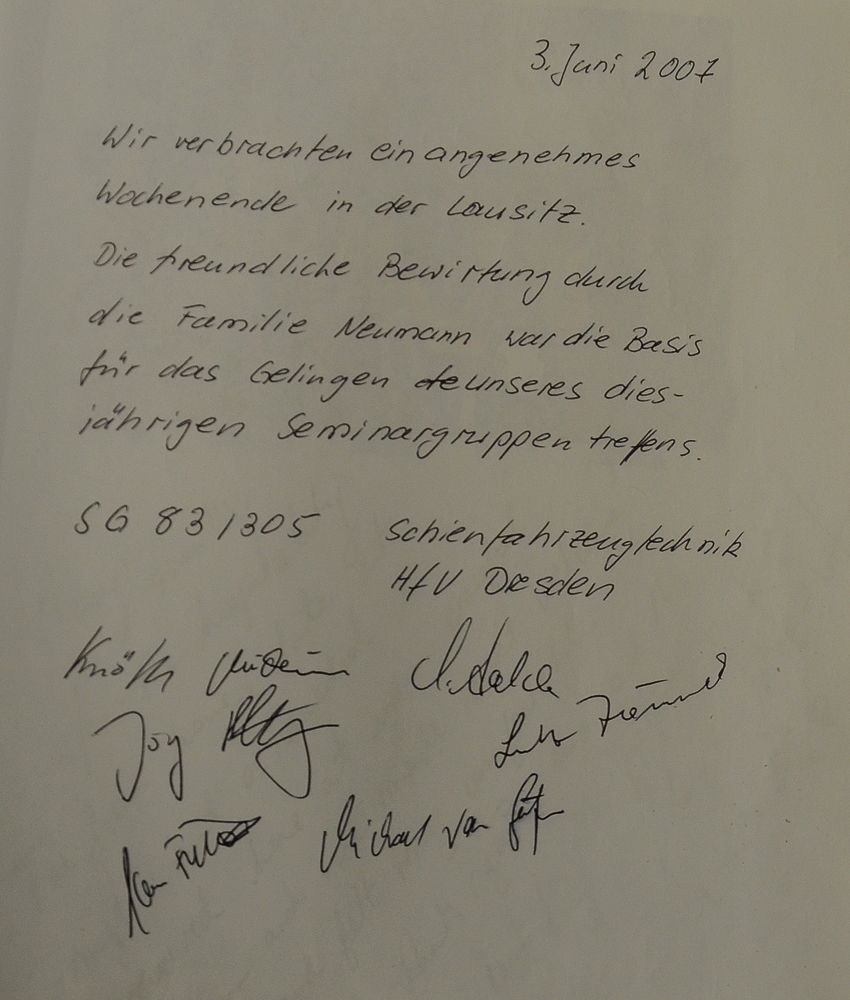 3. Juni 2007
Wir verbrachten ein angenehmes
Wochenende in der Lausitz.
Die freundliche Bewirtung durch
die Familie Neumann war die Basis
für das Gelingen unseres dies-
jährigen Seminargruppentreffens.
SG 83/305 Schienfahrzeugtechnik
HfV Dresden
Jörg
Michael van